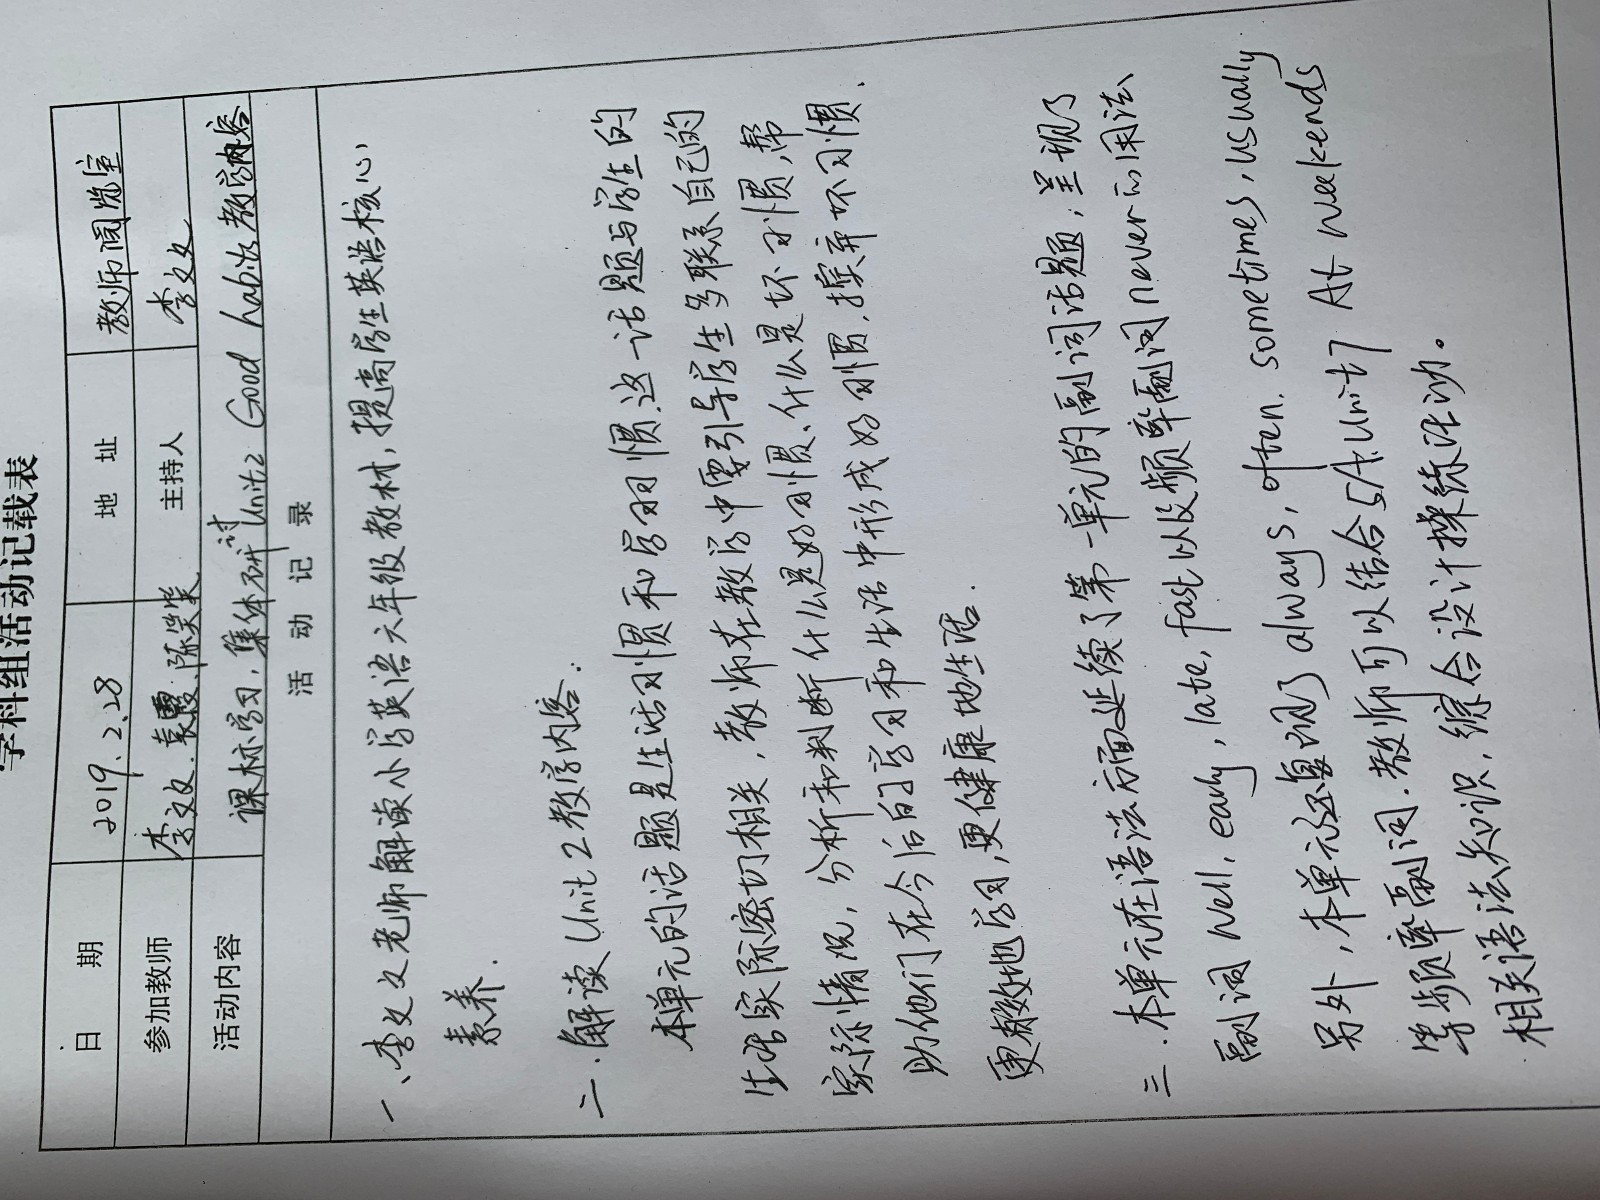 学科组活动记载表
日 期 2019.2.28 地 址 教师阅览室
参加教师 李文文、袁霞、陈笑笑 主持人 李文文
活动内容 课标学习，集体研讨Unit2 Good habits教学内容
活 动 记 录
一、李文文老师解读小学英语六年级教材，提高学生英语核心
素养.
二.解读Unit 2教学内容.
本单元的话题是生活习惯和学习习惯.这一话题与学生的
生活实际密切相关，教师在教学中要引导学生多联系自己的
实际情况，分析和判断什么是好习惯、什么是坏习惯，帮
助他们在今后的学习和生活中形成好习惯，摈弃坏习惯.
更有效地学习,更健康地生活.
三.本单元在语法方面延续了第一单元的副词话题，呈现了
副词 well, early, late, fast以及频率副词never的用法、
另外，本单元还复现了always, often. sometimes, usually
等频率副词.教师可以结合5A.Unit7 At weekends
相关语法知识，综合设计操练活动。